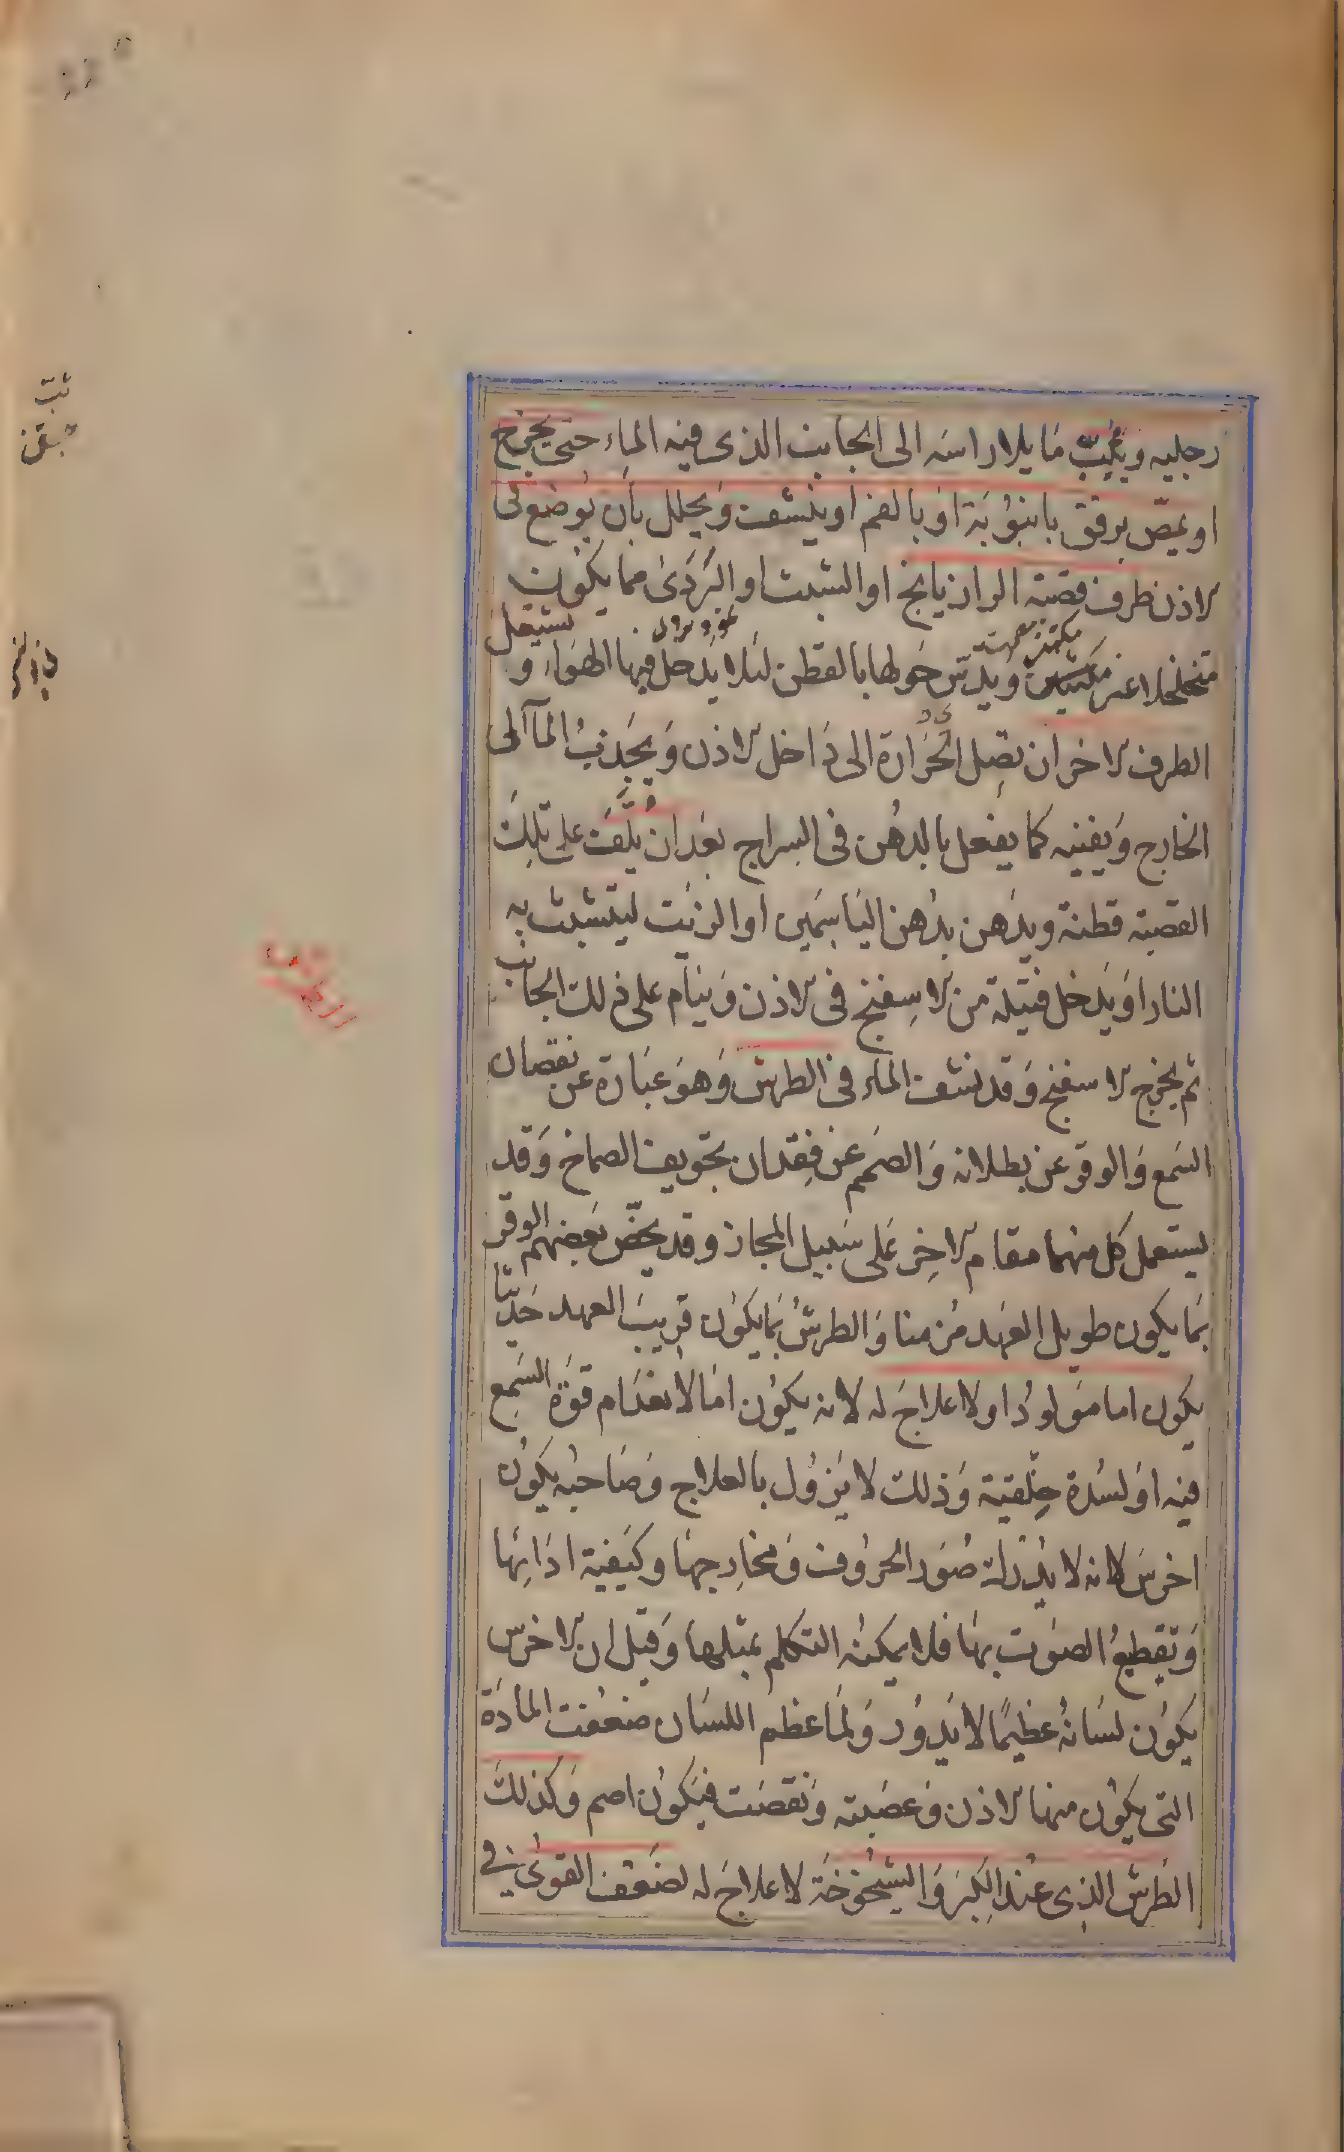 رجليه ويكبّ مايلا راسه الى الجانب الذى فيه الماء حتى يخرج
او يمصّ برفق بانبوُبَة اوَ بالفم او ينشف وَيحلل بان يُوضع فى
الاذن طرف قصبة الرازيانج او الشبث او البَردىٰ مما يكوُن
متخلخلا غير مكتنز ويدسّ حَولها بالقطن لئلا يَدخل فيها الهَوَاء و يشتعل
الطرف الاخر ان تصِل الحَرَارة الى دَاخل الاذن وَيجَذبُ المآ الى
الخارج وَيفنيه كما يفعل بالدهُن فى السراج بَعد ان يُلفَّ على تلك
القصبة قطنة ويدَهن بدُهن اليَاسَمين او الزيَت ليتشبث به
النار اوَ يدَخل فتيلة من الاسِفنج فى الاذن وَينام على ذلك الجانب
ثم يخرج الاسفنج وَقد نشف الماء فى الطرش وَهوَ عبَارة عن نقصان
السَمع وَالوقر عن بطلانه وَالصَمم عَن فِقدان تجوَيف الصماخ وَقد
يستعمل كل منهما مقام الاخِر عَلى سَبيل المجاز وقد يخصّ بَعضهم الوقر
بمَا يكون طويل العَهد مُزمنا وَالطرشُ بمَا يكوُن قرِيبَ العهد حَديثا
يكون اما مَولوُدا ولا علاجَ له لانه يكوُن امَا لانعدَام قوَة السَمع
فيه اوَ لسُدة خِلقية وَذلك لا يَزوُل بالعلاج وَصَاحبُه يكوُن
اخرسَ لانه لا يُدرك صُوَر الحروُف وَمخارجهَا وكيَفية ادَائِهَا
وَتقطيعُ الصوَت بهَا فلا يمكنُه التكلم بمثلها وَقيل ان الاخرس
يكوُن لسَانهُ عظيمًا لا يَدوُر وَلمَا عظم اللسَان ضعُفت المادَة
التى يكوُن منها الاذن وَعصَبته وَنقصَت فيَكوُن اصم وَكذلكَ
الطرَش الذى عنُد الكِبَر وَالشيخُوخَة لا علاجَ له لضَعف القوىٰ فى